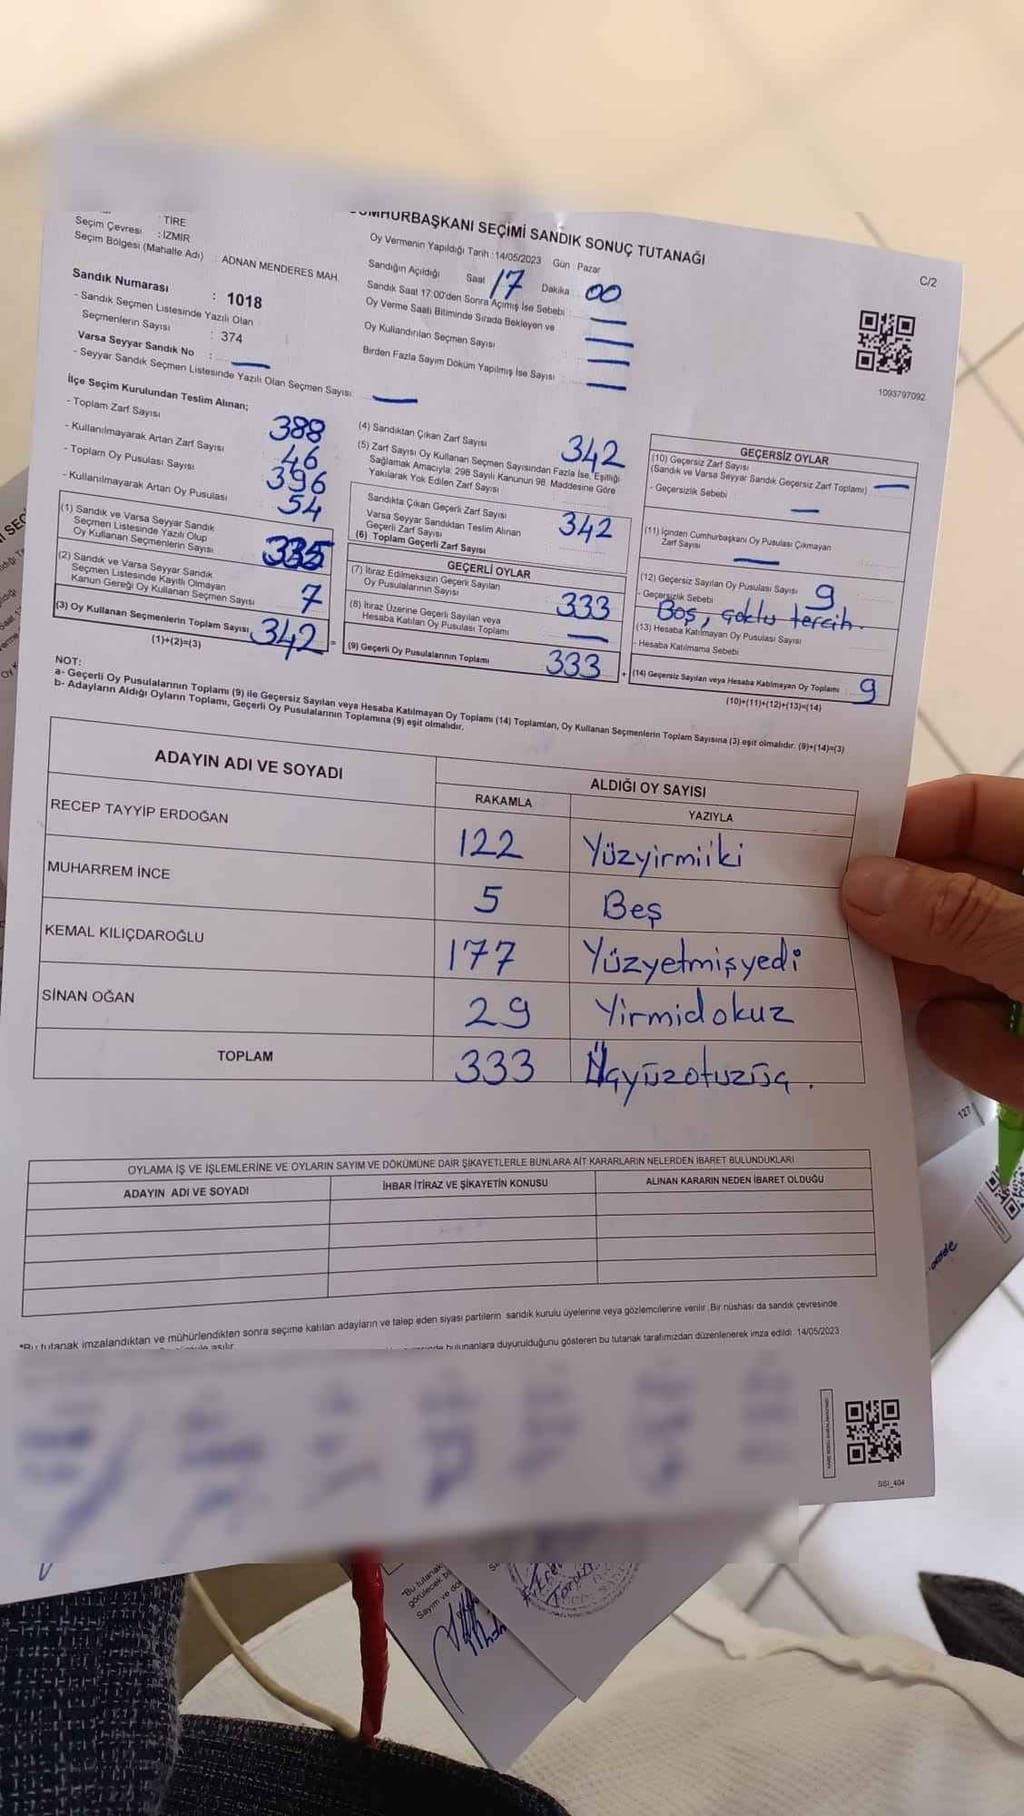 CUMHURBAŞKANI SEÇİMİ SANDIK SONUÇ TUTANAĞI
C/2
: TİRE
Seçim Çevresi : İZMİR
Seçim Bölgesi (Mahalle Adı) : ADNAN MENDERES MAH.
Sandık Numarası : 1018
- Sandık Seçmen Listesinde Yazılı Olan
Seçmenlerin Sayısı : 374
Varsa Seyyar Sandık No : —
- Seyyar Sandık Seçmen Listesinde Yazılı Olan Seçmen Sayısı: —
Oy Vermenin Yapıldığı Tarih : 14/05/2023 Gün : Pazar
Sandığın Açıldığı Saat 17 Dakika : 00
Sandık Saat 17:00'den Sonra Açımış İse Sebebi : —
Oy Verme Saati Bitiminde Sırada Bekleyen ve
Oy Kullandırılan Seçmen Sayısı : —
Birden Fazla Sayım Döküm Yapılmış İse Sayısı : —
1093797092
İlçe Seçim Kurulundan Teslim Alınan;
- Toplam Zarf Sayısı 388
- Kullanılmayarak Artan Zarf Sayısı 46
- Toplam Oy Pusulası Sayısı 396
- Kullanılmayarak Artan Oy Pusulası 54
(1) Sandık ve Varsa Seyyar Sandık
Seçmen Listesinde Yazılı Olup
Oy Kullanan Seçmenlerin Sayısı 335
(2) Sandık ve Varsa Seyyar Sandık
Seçmen Listesinde Kayıtlı Olmayan
Kanun Gereği Oy Kullanan Seçmen Sayısı 7
(3) Oy Kullanan Seçmenlerin Toplam Sayısı 342 =
(1)+(2)=(3)
(4) Sandıktan Çıkan Zarf Sayısı 342
(5) Zarf Sayısı Oy Kullanan Seçmen Sayısından Fazla İse, Eşitliği
Sağlamak Amacıyla; 298 Sayılı Kanunun 98. Maddesine Göre
Yakılarak Yok Edilen Zarf Sayısı
Sandıkta Çıkan Geçerli Zarf Sayısı
Varsa Seyyar Sandıktan Teslim Alınan
Geçerli Zarf Sayısı
(6) Toplam Geçerli Zarf Sayısı 342
GEÇERLİ OYLAR
(7) İtiraz Edilmeksizin Geçerli Sayılan
Oy Pusulalarının Sayısı 333
(8) İtiraz Üzerine Geçerli Sayılan veya
Hesaba Katılan Oy Pusulası Toplamı —
(9) Geçerli Oy Pusulalarının Toplamı 333 +
GEÇERSİZ OYLAR
(10) Geçersiz Zarf Sayısı
(Sandık ve Varsa Seyyar Sandık Geçersiz Zarf Toplamı) —
- Geçersizlik Sebebi —
(11) İçinden Cumhurbaşkanı Oy Pusulası Çıkmayan
Zarf Sayısı —
(12) Geçersiz Sayılan Oy Pusulası Sayısı 9
- Geçersizlik Sebebi Boş, çoklu tercih.
(13) Hesaba Katılmayan Oy Pusulası Sayısı
- Hesaba Katılmama Sebebi
(14) Geçersiz Sayılan veya Hesaba Katılmayan Oy Toplamı 9
(10)+(11)+(12)+(13)=(14)
NOT:
a- Geçerli Oy Pusulalarının Toplamı (9) ile Geçersiz Sayılan veya Hesaba Katılmayan Oy Toplamı (14) Toplamları, Oy Kullanan Seçmenlerin Toplam Sayısına (3) eşit olmalıdır. (9)+(14)=(3)
b- Adayların Aldığı Oyların Toplamı, Geçerli Oy Pusulalarının Toplamına (9) eşit olmalıdır.
ADAYIN ADI VE SOYADI ALDIĞI OY SAYISI
RAKAMLA YAZIYLA
RECEP TAYYİP ERDOĞAN 122 Yüzyirmiiki
MUHARREM İNCE 5 Beş
KEMAL KILIÇDAROĞLU 177 Yüzyetmişyedi
SİNAN OĞAN 29 Yirmidokuz
TOPLAM 333 Üçyüzotuzüç.
OYLAMA İŞ VE İŞLEMLERİNE VE OYLARIN SAYIM VE DÖKÜMÜNE DAİR ŞİKAYETLERLE BUNLARA AİT KARARLARIN NELERDEN İBARET BULUNDUKLARI
ADAYIN ADI VE SOYADI İHBAR İTİRAZ VE ŞİKAYETİN KONUSU ALINAN KARARIN NEDEN İBARET OLDUĞU
*Bu tutanak imzalandıktan ve mühürlendikten sonra seçime katılan adayların ve talep eden siyasi partilerin sandık kurulu üyelerine veya gözlemcilerine verilir. Bir nüshası da sandık çevresinde
asılır.
bulunanlara duyurulduğunu gösteren bu tutanak tarafımızdan düzenlenerek imza edildi. 14/05/2023
127
"Bu tutanak